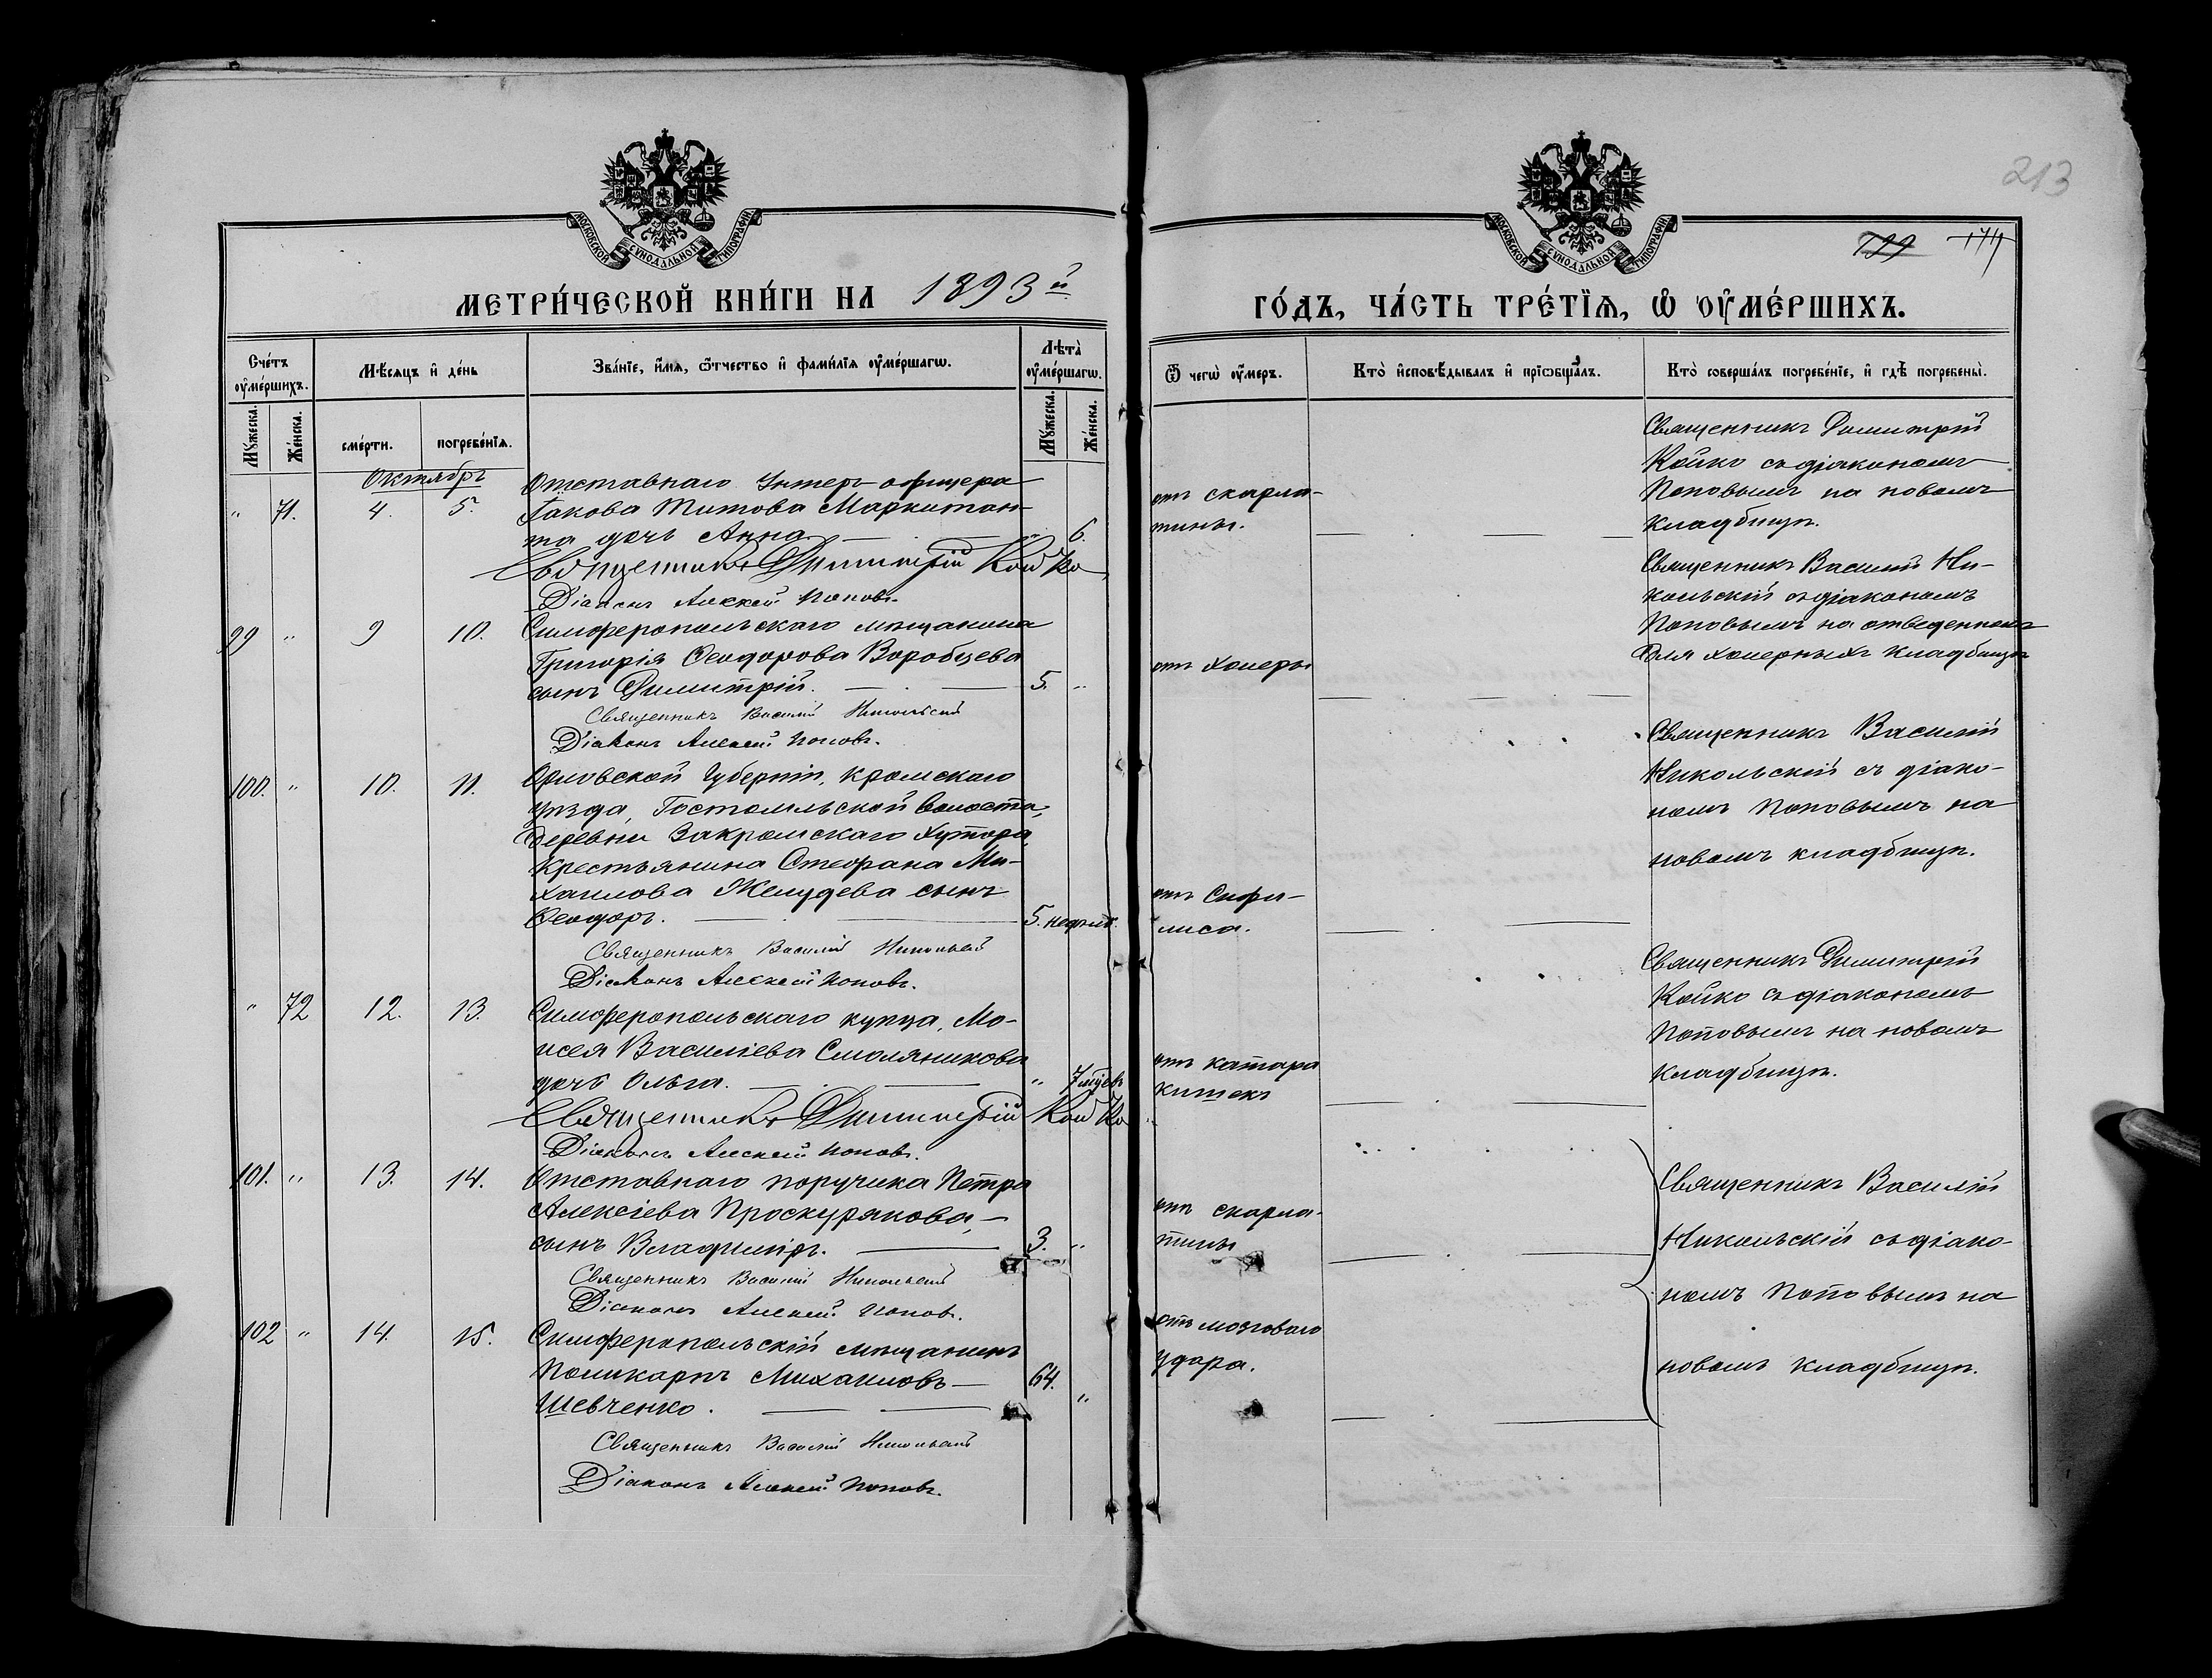 213
199 174
МОСКОВСКОЙ СѴНОДАЛЬНОЙ ТИПОГРАФІИ
МОСКОВСКОЙ СѴНОДАЛЬНОЙ ТИПОГРАФІИ
МЕТРИ́ЧЕСКОЙ КНИ́ГИ НА 1893й
ГО́ДЪ, ЧА́СТЬ ТРЕ́ТЇѦ, Ѡ҆ ОУ҆МЕ́РШИХЪ.
Сче́тъ оу҆ме́ршихъ.
Мѣ́сѧцъ и҆ де́нь
Зва́нїе, и҆́мѧ, ѻ҆́тчество и҆ фами́лїѧ оу҆ме́ршагѡ.
Лѣ́та̀ оу҆ме́ршагѡ.
Ѿ чегѡ̀ оу҆́меръ.
Кто̀ и҆сповѣ́дывалъ и҆ прїѡбща́лъ.
Кто̀ соверша́лъ погребе́нїе, и҆ гдѣ̀ погребены̀.
Му́жеска.
Же́нска.
сме́рти.
погребе́нїѧ.
Му́жеска.
Же́нска.
Октябрь
" 71. 4. 5.
Отставнаго Унтеръ-офицера
Іакова Титова Маркитан-
та дочь Анна. " 6.
Священникъ Димитрій Койко
Діаконъ Алексей Поповъ.
отъ скарла-
тины.
Священникъ Димитрій
Койко съ діакономъ
Поповымъ на новомъ
кладбищѣ.
99 " 9 10.
Симферопольскаго мѣщанина
Григорія Ѳеодорова Воробцева
сынъ Димитрій. 5. "
Священникъ Василій Никольскій
Діаконъ Алексей Поповъ.
отъ холеры
Священникъ Василій Ни-
кольскій съ діакономъ
Поповымъ на отведенномъ
для холерныхъ кладбищѣ
100. " 10. 11.
Орловской Губерніи, Кромскаго
уѣзда, Гостомльской волости,
деревни Закромскаго Хутора,
крестьянина Стефана Ми-
хаилова Желудева сынъ
Ѳеодоръ. 5. недѣль.
Священникъ Василій Никольскій
Діаконъ Алексей Поповъ.
отъ Сифи-
лиса.
Священникъ Василій
Никольскій съ діако-
номъ Поповымъ на
новомъ кладбищѣ.
" 72 12. 13.
Симферопольскаго купца, Мо-
исея Василіева Смоляникова
дочь Ольга. " 7 мѣсъ
Священникъ Димитрій Койко
Діаконъ Алексей Поповъ.
отъ катара
кишекъ
Священникъ Димитрій
Койко съ діакономъ
Поповымъ на новомъ
кладбищѣ.
101. " 13. 14.
Отставнаго поручика Петра
Алексіева Проскурякова,
сынъ Владиміръ. 3. "
Священникъ Василій Никольскій
Діаконъ Алексей Поповъ.
отъ скарла-
тины
Священникъ Василій
Никольскій съ діако-
номъ Поповымъ на
новомъ кладбищѣ.
102 " 14. 15.
Симферопольскій мѣщанинъ
Поликарпъ Михаиловъ 64.
Шевченко. "
Священникъ Василій Никольскій
Діаконъ Алексей Поповъ.
отъ мозговаго
удара.